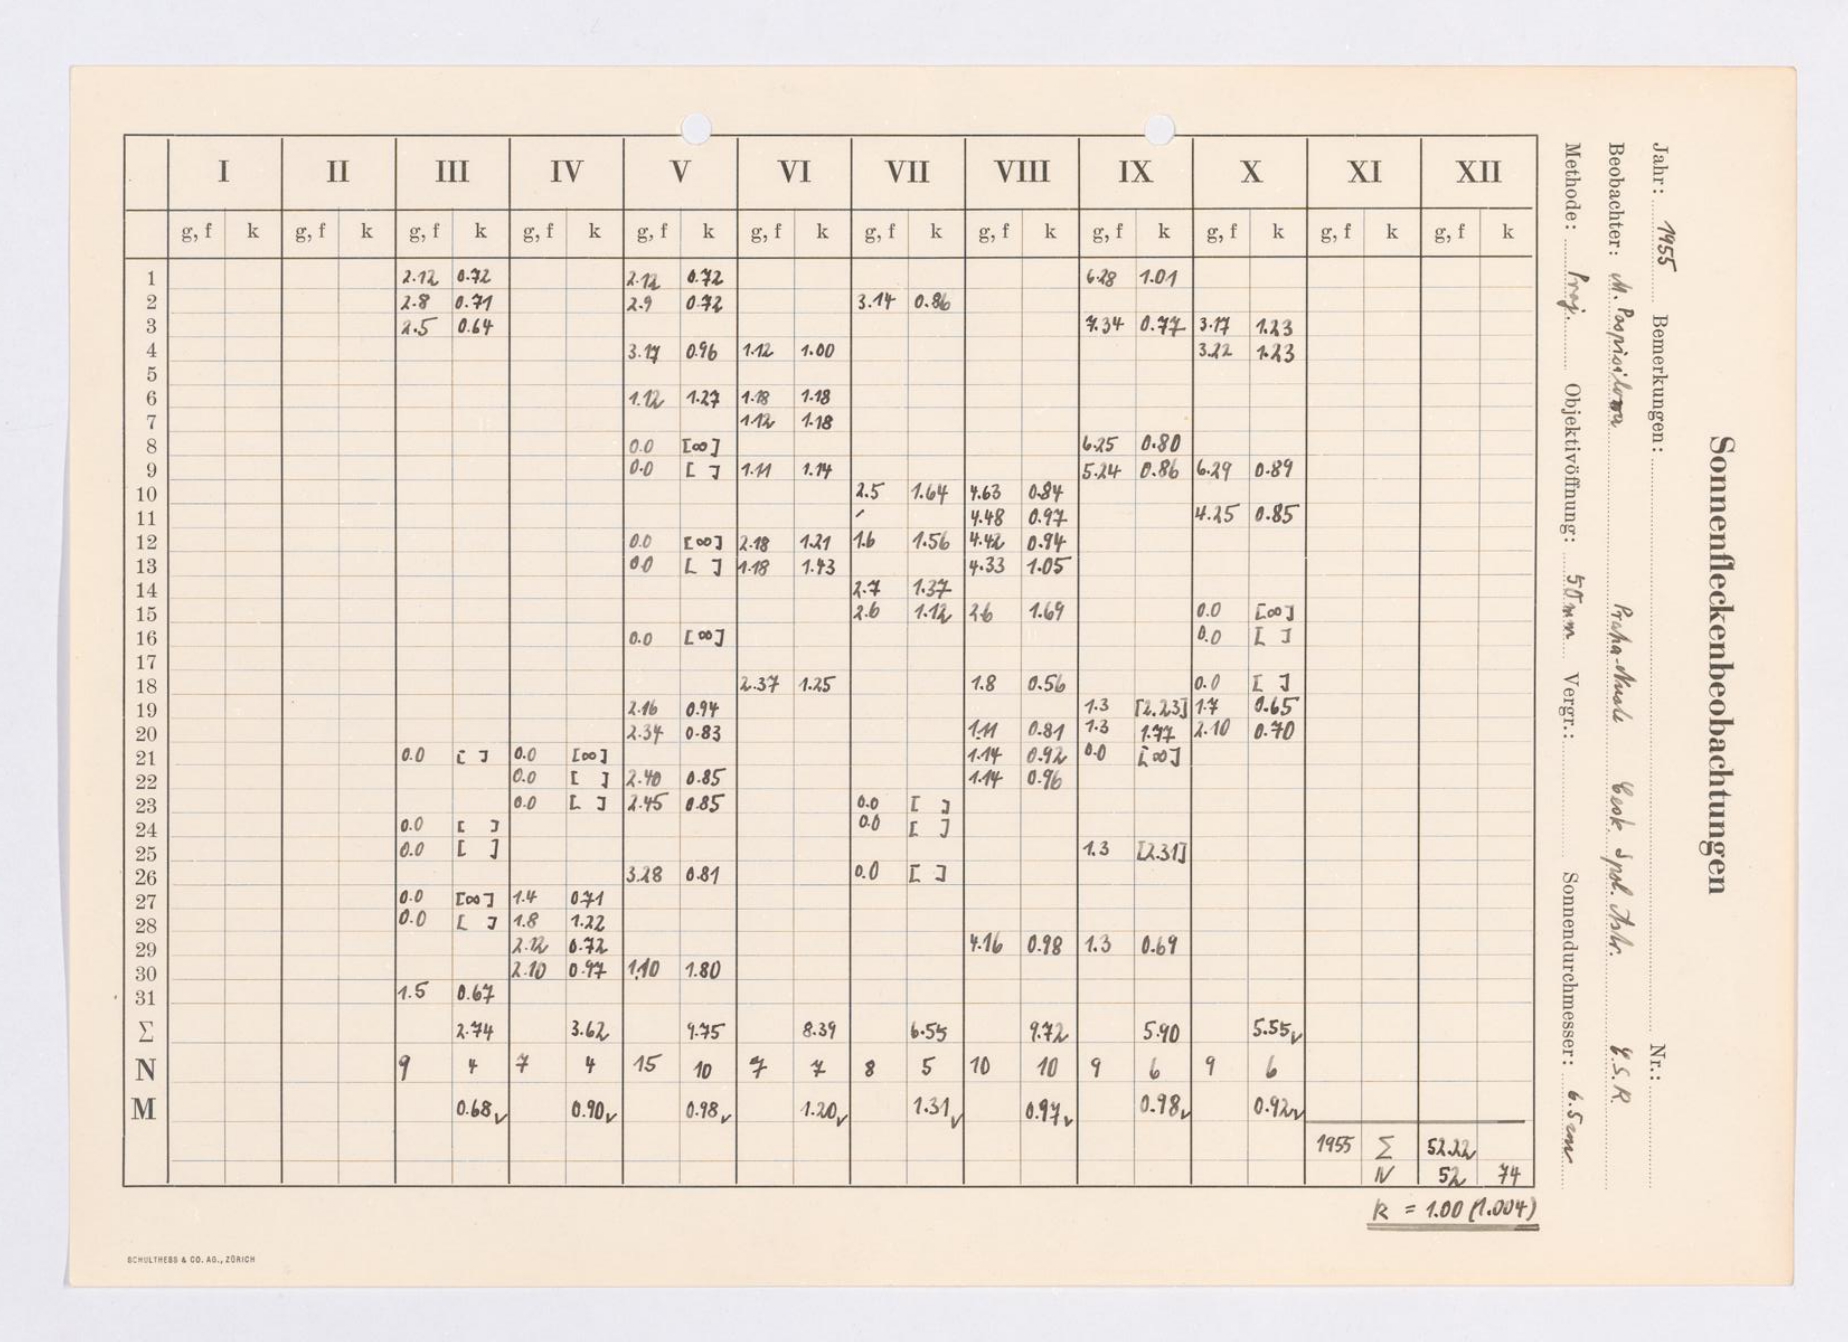 Sonnenfleckenbeobachtungen
Jahr: 1955 Bemerkungen: Nr.:
Beobachter: M. Pospisilova Praha-Nusle Česk. Spol. Astr. Č.S.R.
Methode: Proj. Objektivöffnung: 50 mm Vergr.: Sonnendurchmesser: 6.5 cm
I II III IV V VI VII VIII IX X XI XII
g, f k g, f k g, f k g, f k g, f k g, f k g, f k g, f k g, f k g, f k g, f k g, f k
1 2.12 0.72 2.12 0.72 6.28 1.01
2 2.8 0.71 2.9 0.72 3.14 0.86
3 2.5 0.64 7.34 0.77 3.17 1.23
4 3.17 0.96 1.12 1.00 3.22 1.23
5
6 1.12 1.27 1.18 1.18
7 1.12 1.18
8 0.0 [∞] 6.25 0.80
9 0.0 [ ] 1.11 1.14 5.24 0.86 6.29 0.89
10 2.5 1.64 4.63 0.84
11 4.48 0.97 4.25 0.85
12 0.0 [∞] 2.18 1.21 1.6 1.56 4.42 0.94
13 0.0 [ ] 1.18 1.43 4.33 1.05
14 2.7 1.37
15 2.6 1.12 2.6 1.69 0.0 [∞]
16 0.0 [∞] 0.0 [ ]
17
18 2.37 1.25 1.8 0.56 0.0 [ ]
19 2.16 0.94 1.3 [2.23] 1.7 0.65
20 2.34 0.83 1.11 0.81 1.3 1.77 2.10 0.70
21 0.0 [ ] 0.0 [∞] 1.14 0.92 0.0 [∞]
22 0.0 [ ] 2.40 0.85 1.14 0.96
23 0.0 [ ] 2.45 0.85 0.0 [ ]
24 0.0 [ ] 0.0 [ ]
25 0.0 [ ] 1.3 [2.31]
26 3.28 0.81 0.0 [ ]
27 0.0 [∞] 1.4 0.71
28 0.0 [ ] 1.8 1.22
29 2.12 0.72 4.16 0.98 1.3 0.69
30 2.10 0.97 1.10 1.80
31 1.5 0.67
Σ 2.74 3.62 9.75 8.39 6.55 9.72 5.90 5.55
N 9 4 7 4 15 10 7 7 8 5 10 10 9 6 9 6
M 0.68 0.90 0.98 1.20 1.31 0.97 0.98 0.92
1955 Σ 52.22
N 52 74
k = 1.00 (1.004)
SCHULTHESS & CO. AG., ZÜRICH